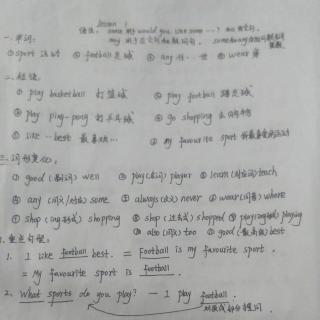 lesson 1
语法: some 用于would you like some …? 和肯定句,
any 用于否定句和疑问句.
一. 单词:
① sport 运动 ② football 足球 ③ any 任一 ④ wear 穿
二. 短语:
① play basketball 打篮球 ② play football 踢足球
③ play ping-pong 打乒乓球 ④ go shopping 去购物
⑤ like …best 最喜欢… ⑥ my favourite sport
三. 词形变化:
① good (副词) well ② play (名词) player ③ learn (对应词) teach
④ any (同义/对应) some ⑤ always (反义) never ⑥ wear (同音) where
⑦ shop (ing形式) shopping ⑧ shop (过去式) shopped ⑨ play (ing形式) playing
⑩ also (同义) too ⑪ good (最高级) best
重点句型:
1. I like football best. = Football is my favourite sport.
= My favourite sport is football.
2. What sports do you play? — I play football.
对画线部分提问